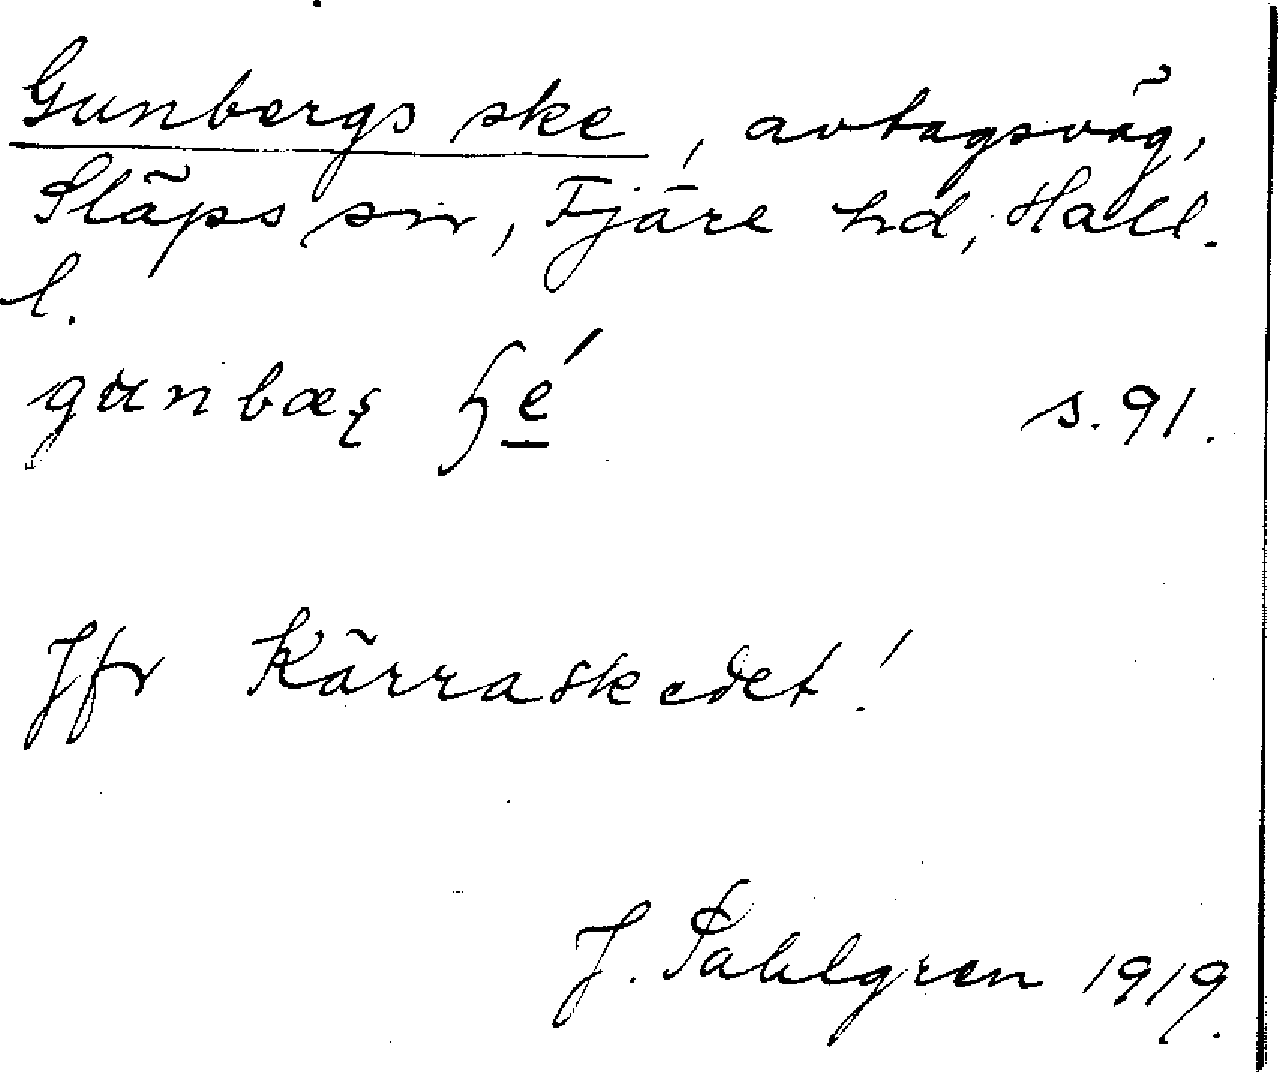 Gunbergs ske, avtagsväg,
Släps sn, Fjäre hd, Hall.
l.
gunbæș ɧé s. 91.
Jfr Kärraskedet!
J. Sahlgren 1919.